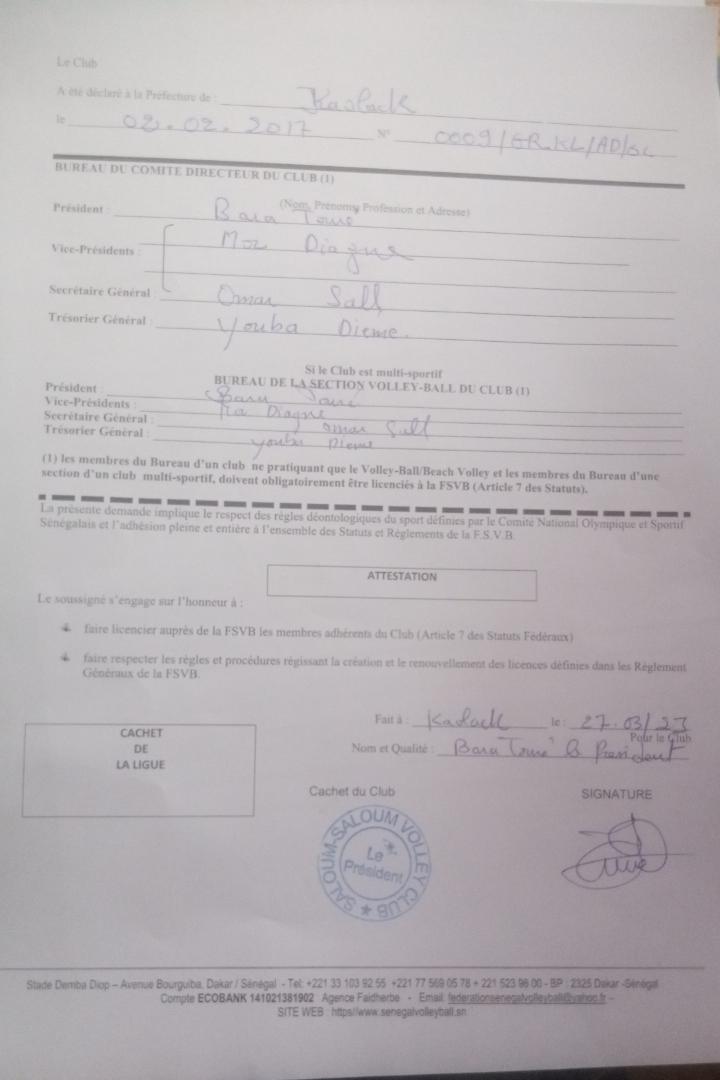 Le Club
A été déclaré à la Préfecture de : Kaolack
le 02.02.2017 N° 0009/GR.KL/AD/SC
BUREAU DU COMITE DIRECTEUR DU CLUB (1)
(Nom, Prénoms, Profession et Adresse)
Président : Bara Toure
Vice-Présidents : Mor Diagne
Secrétaire Général : Omar Sall
Trésorier Général : Youba Dieme.
Si le Club est multi-sportif
BUREAU DE LA SECTION VOLLEY-BALL DU CLUB (1)
Président : Bara Touré
Vice-Présidents : Diagne
Secrétaire Général : Omar Sall
Trésorier Général : Youba Dieme
(1) les membres du Bureau d'un club ne pratiquant que le Volley-Ball/Beach Volley et les membres du Bureau d'une
section d'un club multi-sportif, doivent obligatoirement être licenciés à la FSVB (Article 7 des Statuts).
La présente demande implique le respect des règles déontologiques du sport définies par le Comité National Olympique et Sportif
Sénégalais et l'adhésion pleine et entière à l'ensemble des Statuts et Règlements de la F.S.V.B.
ATTESTATION
Le soussigné s'engage sur l'honneur à :
faire licencier auprès de la FSVB les membres adhérents du Club (Article 7 des Statuts Fédéraux)
faire respecter les règles et procédures régissant la création et le renouvellement des licences définies dans les Règlement
Généraux de la FSVB.
Fait à : Kaolack le : 27.03/23
Pour le Club
Nom et Qualité : Bara Touré President
CACHET
DE
LA LIGUE
Cachet du Club
SIGNATURE
SALOUM-SALOUM VOLLEY CLUB
Le
Président
Stade Demba Diop – Avenue Bourguiba, Dakar / Sénégal - Tel: +221 33 103 92 55 +221 77 569 05 78 + 221 523 96 00 - BP : 2325 Dakar -Sénégal
Compte ECOBANK 141021381902 Agence Faidherbe - Email: federationsenegalvolleyball@yahoo.fr -
SITE WEB : https//www.senegalvolleyball.sn